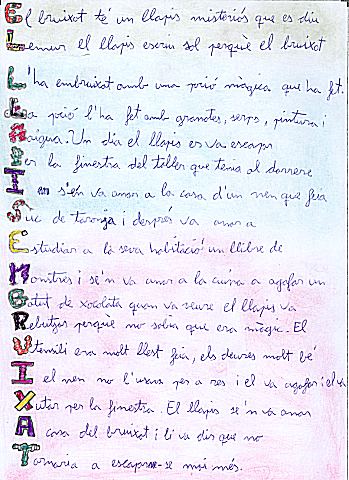 El bruixot té un llapis misteriós que es diu
Llemur el llapis escriu sol perquè el bruixot
L'ha embruixat amb una poió màgica que ha fet.
La poió l'ha fet amb granotes, serps, pintura i
Aaigua. Un dia el llapis es va escapar
Per la finestra del taller que tenia al darrere
I en s'én va anar a la casa d'un nen que feia
Suc de taronja i després va anar a
Estudiar a la seva habitació un llibre de
Monstres i se'n va anar a la cuina a agafar un
Gotut de xocolata quan va veure el llapis va
Rebutjar perquè no sabia que era màgic. El
Utensili era molt llest feia, els deures molt bé
I el nen no l'usava per a res i el va agafar i el va
Xutar per la finestra. El llapis se'n va anar
A casa del bruixot i li va dir que no
Tornaria a escapar-se mai més.